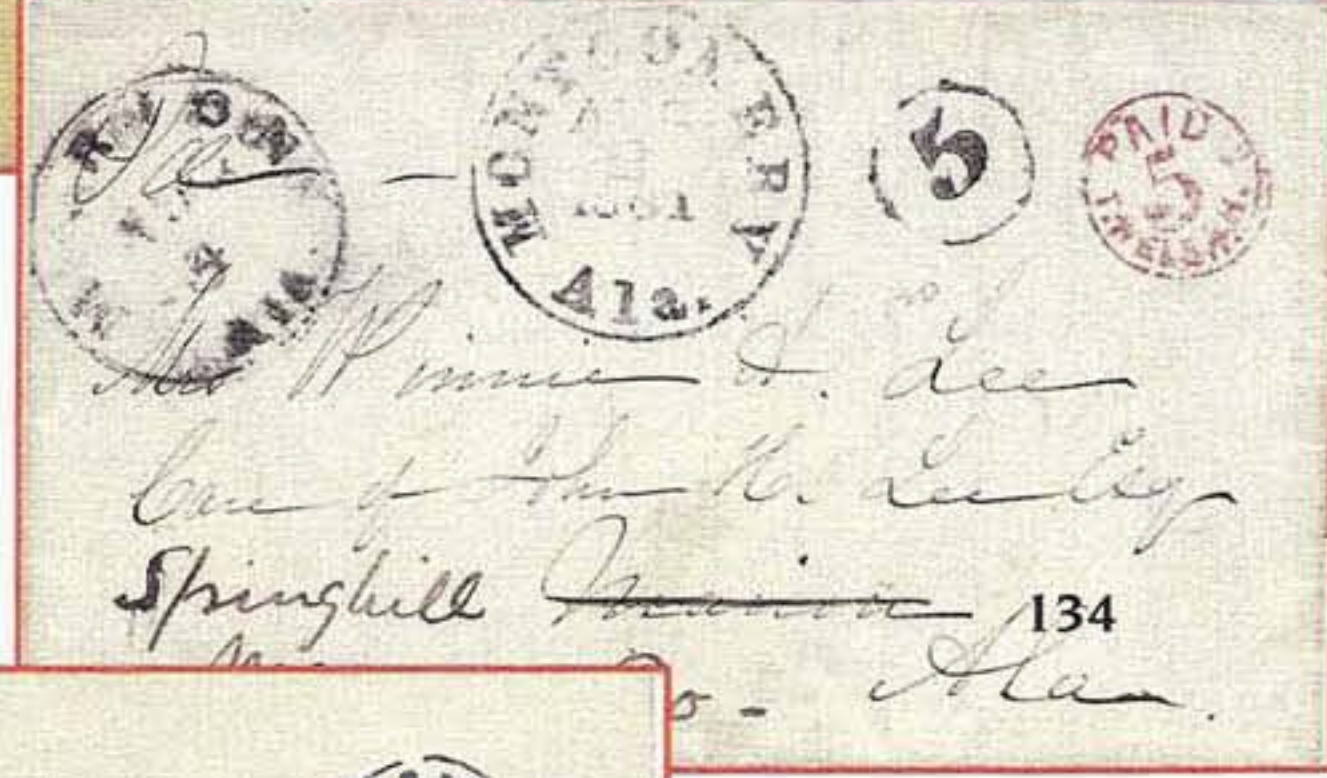 MONTGOMERY
1861
Ala.
5
PAID
5
T. WELSH.
Mrs Winnie A. Lee
Care of John H. Lee Esq
Springhill Marion 134
Co - Ala.